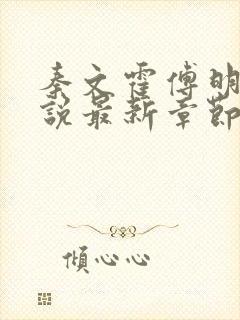 秦文霍傅明
說最新章節
傾心心